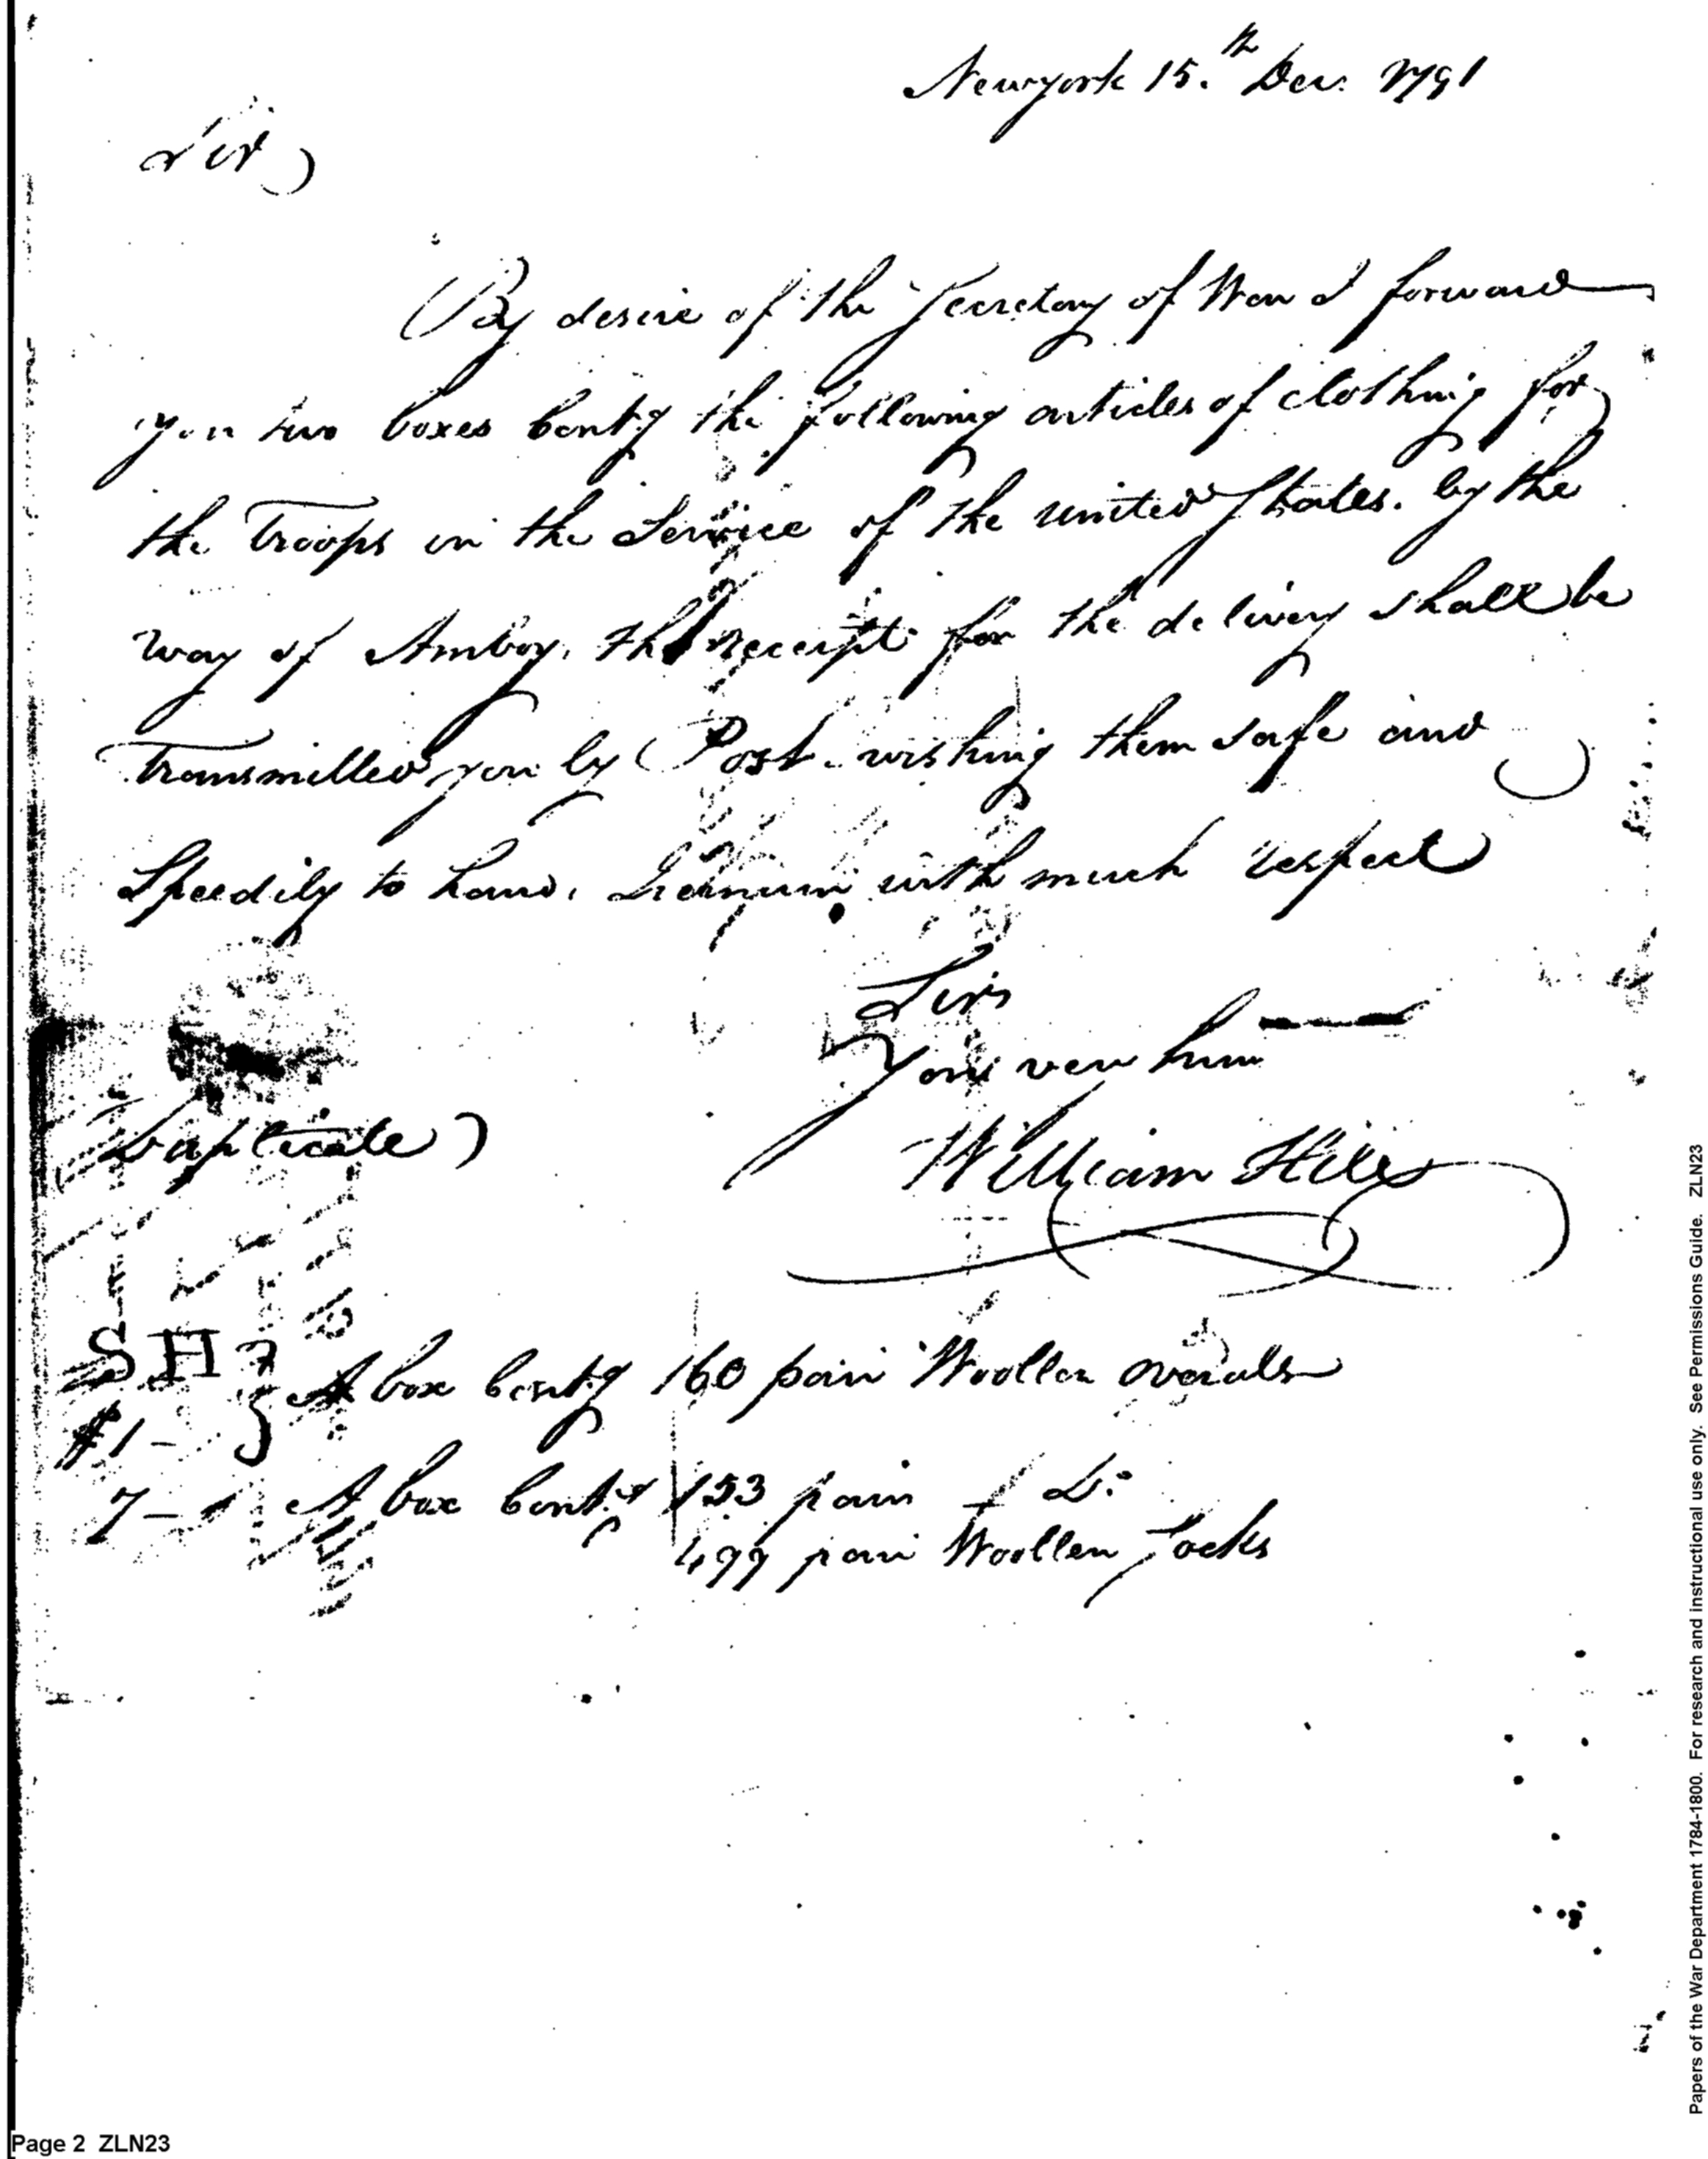 Newyork 15.th Decr. 1791
Sir
By desire of the Secretary of War I forward
you two boxes Contg the following articles of clothing for
the Troops in the Service of the united States. by the
way of Amboy, the receipt for the delivery shall be
Transmitted you by Post. wishing them safe and
Speedily to hand, I remain with much respect
Sir
Your very hum
William Hill
Duplicate
SH
#1 - A box Contg 160 pair Woollen overalls
7 - A box Contg 153 pair Do
499 pair Woollen Socks
Page 2 ZLN23
Papers of the War Department 1784-1800. For research and instructional use only. See Permissions Guide. ZLN23